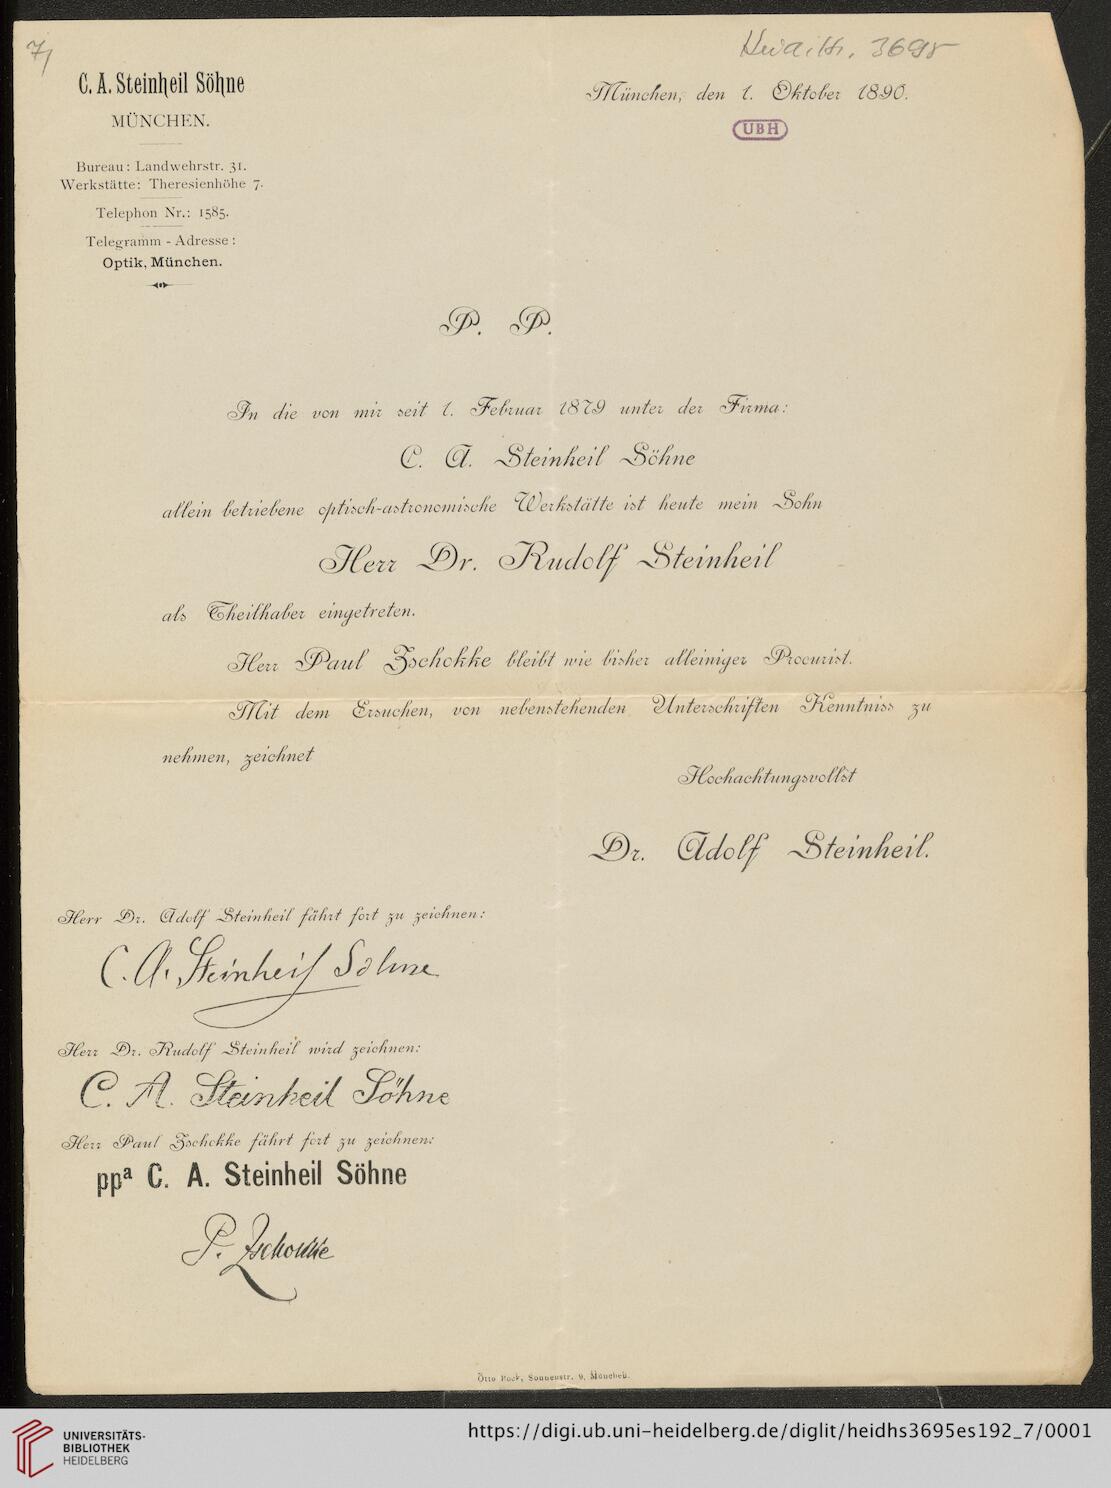 7)
Heid. Hs. 3695
C. A. Steinheil Söhne
MÜNCHEN.
Bureau: Landwehrstr. 31.
Werkstätte: Theresienhöhe 7.
Telephon Nr.: 1585.
Telegramm - Adresse:
Optik, München.
München, den 1. Oktober 1890.
UBH
P. P.
In die von mir seit 1. Februar 1879 unter der Firma:
C. A. Steinheil Söhne
allein betriebene optisch-astronomische Werkstätte ist heute mein Sohn
Herr Dr. Rudolf Steinheil
als Theilhaber eingetreten.
Herr Paul Zschokke bleibt wie bisher alleiniger Procurist.
Mit dem Ersuchen, von nebenstehenden Unterschriften Kenntniss zu
nehmen, zeichnet
Hochachtungsvollst
Dr. Adolf Steinheil.
Herr Dr. Adolf Steinheil fährt fort zu zeichnen:
C. A. Steinheil Söhne
Herr Dr. Rudolf Steinheil wird zeichnen:
C. A. Steinheil Söhne
Herr Paul Zschokke fährt fort zu zeichnen:
ppa C. A. Steinheil Söhne
P. Zschokke
Otto Sonnenstr. 9, München.
UNIVERSITÄTS-
BIBLIOTHEK
HEIDELBERG
https://digi.ub.uni-heidelberg.de/diglit/heidhs3695es192_7/0001